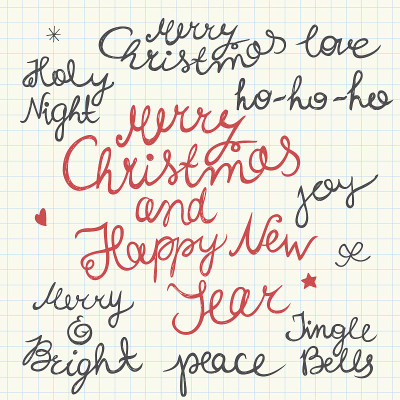 Merry
Christmas
love
Holy
Night
ho-ho-ho
Merry
Christmas
and
Happy New
Year
joy
Merry
&
Bright
peace
Jingle
Bells